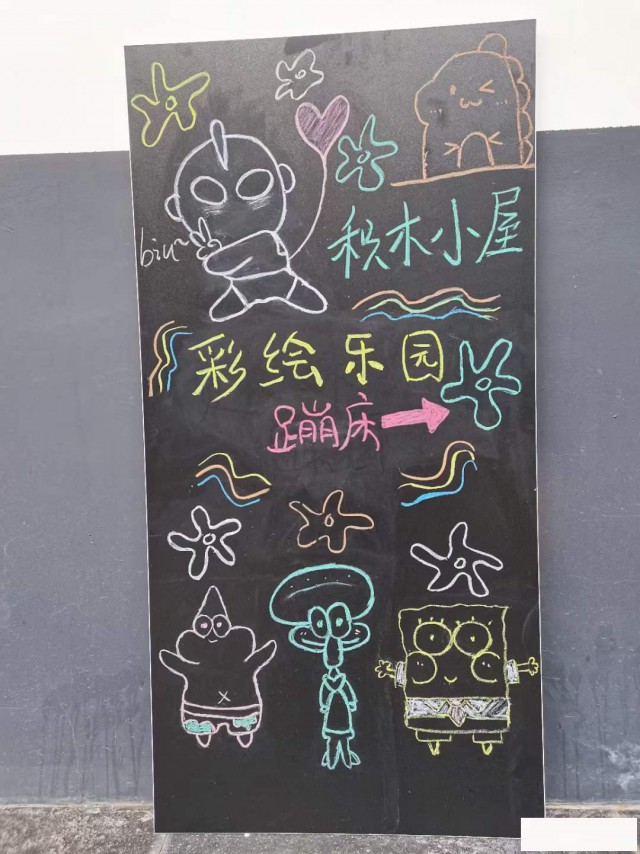 biu~
积木小屋
彩绘乐园
蹦床